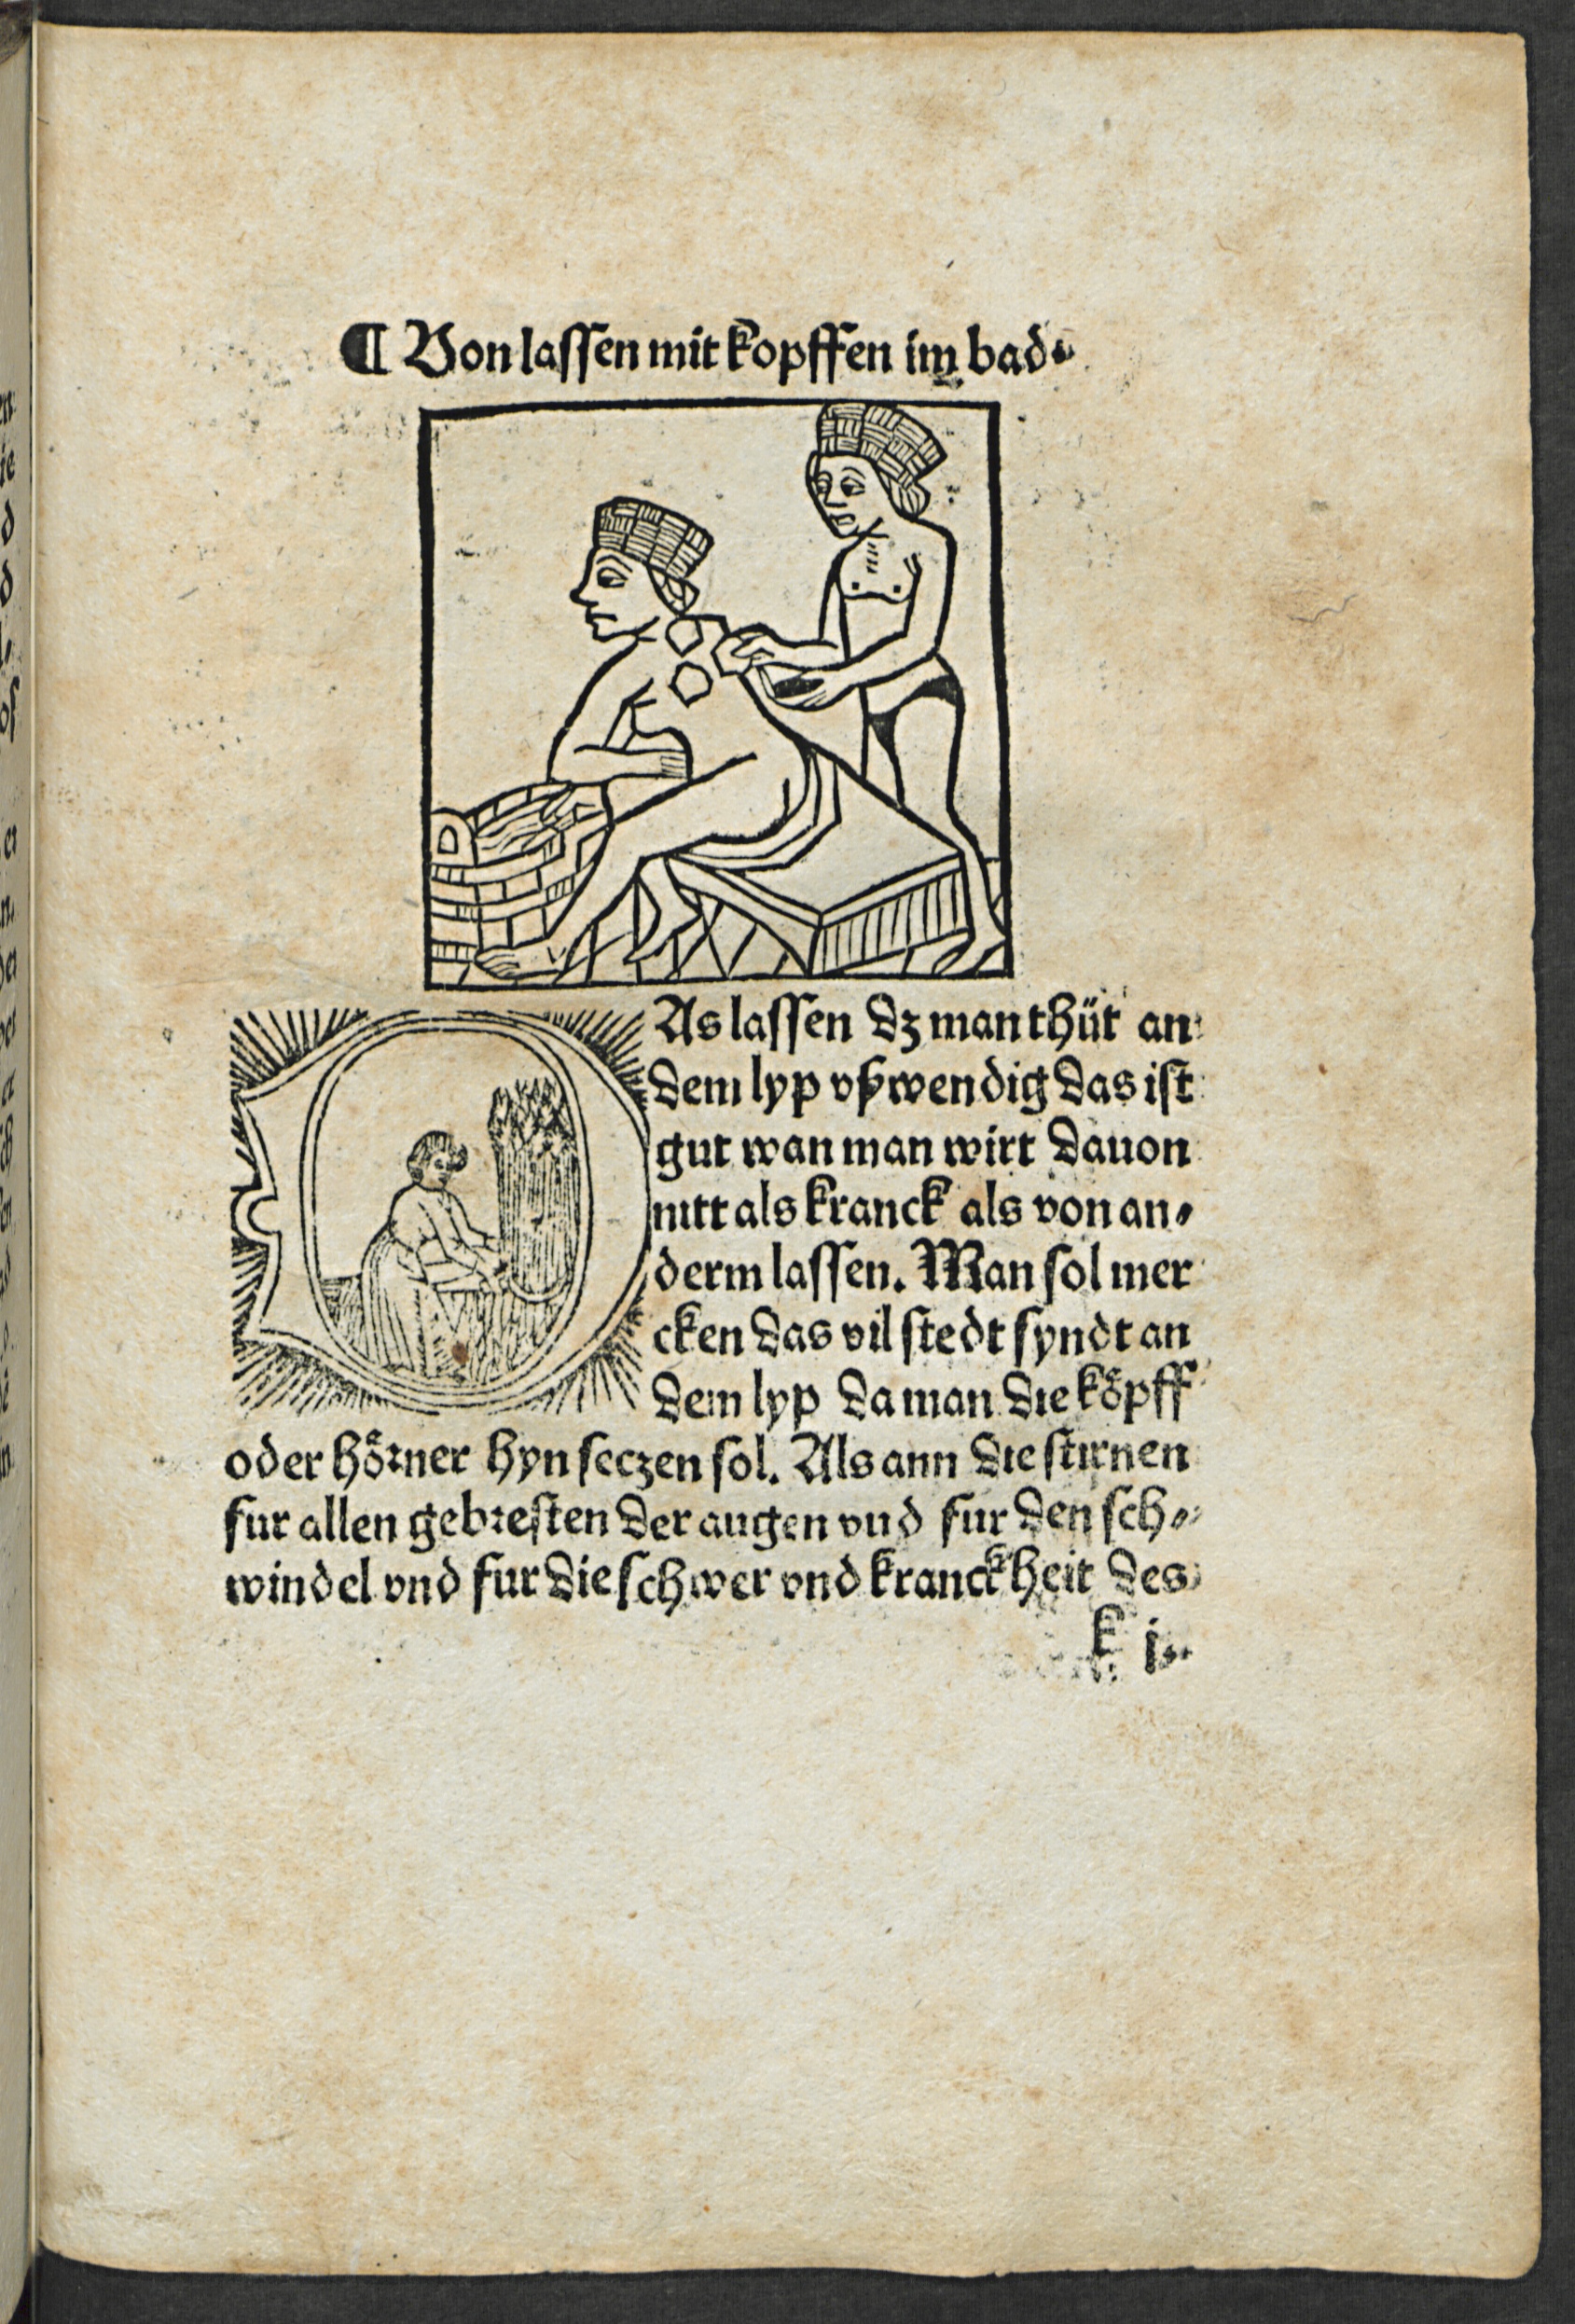 ¶ Von lassen mit kopffen im bad.
DAs lassen dz man thůt an
dem lyp vßwendig das ist
gut wan man wirt dauon
nitt als kranck als von an⸗
derm lassen. Man sol mer
cken das vil stedt syndt an
dem lyp da man die koͤpff
oder hoͤrner hyn seczen sol. Als ann die stirnen
fur allen gebresten der augen vnd fur den sch⸗
windel vnd fur die schwer vnd kranckheit des
k i.